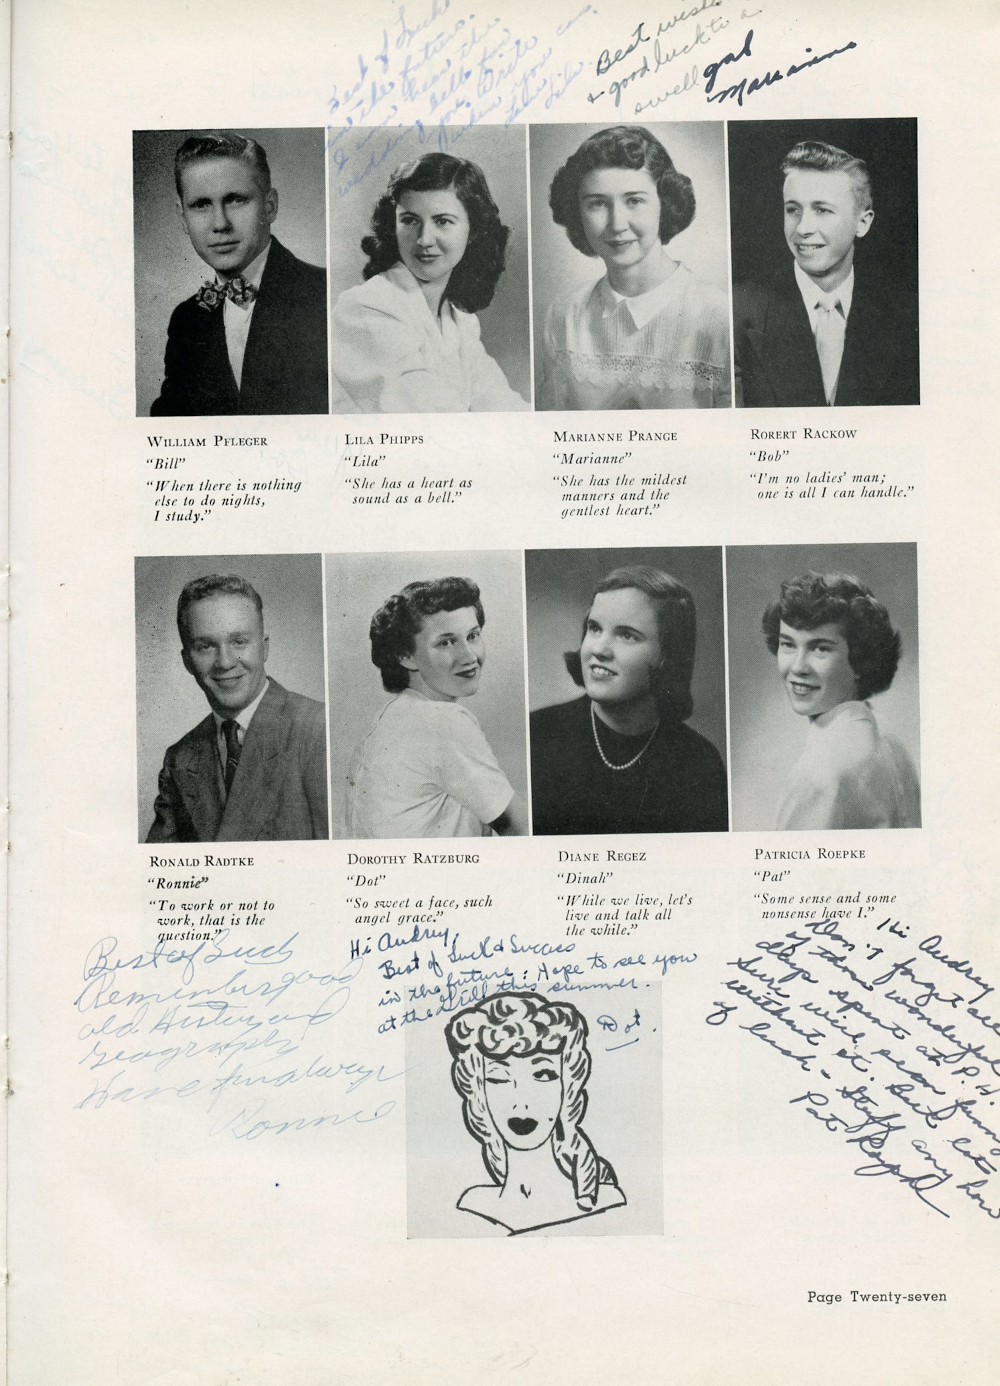 Best of Luck
in the future.
I can hear the
wedding bells for
you. Write
when you can.
Love Lila
Best wishes
& good luck to a
swell gal
Marianne
WILLIAM PFLEGER
"Bill"
"When there is nothing
else to do nights,
I study."
LILA PHIPPS
"Lila"
"She has a heart as
sound as a bell."
MARIANNE PRANGE
"Marianne"
"She has the mildest
manners and the
gentlest heart."
RORERT RACKOW
"Bob"
"I'm no ladies' man;
one is all I can handle."
RONALD RADTKE
"Ronnie"
"To work or not to
work, that is the
question."
DOROTHY RATZBURG
"Dot"
"So sweet a face, such
angel grace."
DIANE REGEZ
"Dinah"
"While we live, let's
live and talk all
the while."
PATRICIA ROEPKE
"Pat"
"Some sense and some
nonsense have I."
Best of Luck
Remember good
old History and
Geography
Have fun always
Ronnie
Hi Audrey,
Best of Luck & Success
in the future. Hope to see you
at the Grill this summer.
Dot.
Hi Audrey
Don't forget all
of those wonderful
days spent at P.H.
Sure will seem funny
without it. But lots
of luck & stuff anyhow
Pat Roepke
Page Twenty-seven